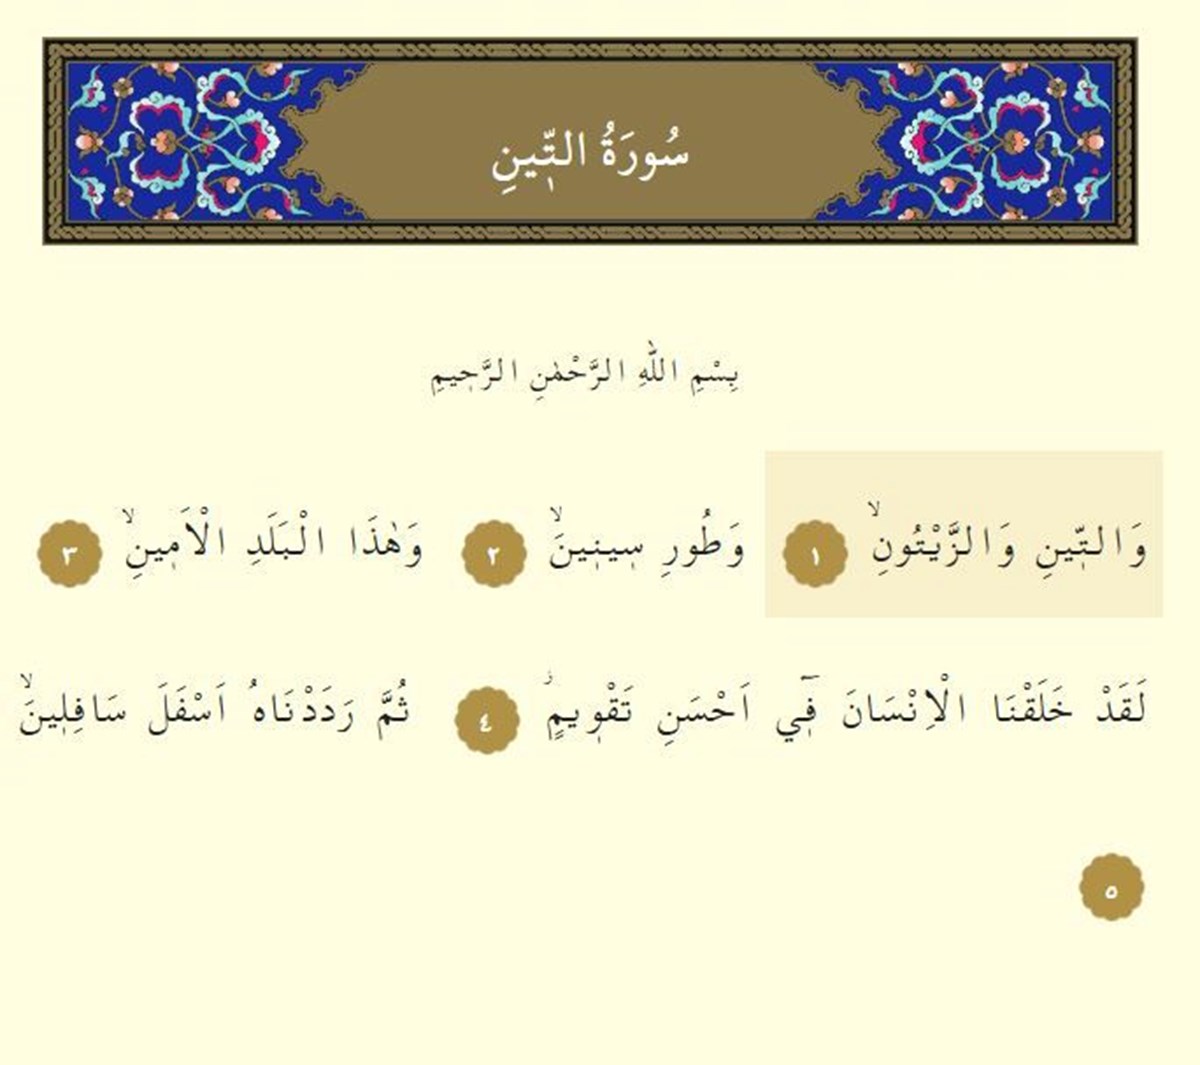 سُورَةُ التّ۪ينِ
بِسْمِ اللّٰهِ الرَّحْمٰنِ الرَّح۪يمِ
وَالتّ۪ينِ وَالزَّيْتُونِۙ ١ وَطُورِ س۪ين۪ينَۙ ٢ وَهٰذَا الْبَلَدِ الْاَم۪ينِۙ ٣
لَقَدْ خَلَقْنَا الْاِنْسَانَ ف۪ٓي اَحْسَنِ تَقْو۪يمٍۘ ٤ ثُمَّ رَدَدْنَاهُ اَسْفَلَ سَافِل۪ينَۙ
٥